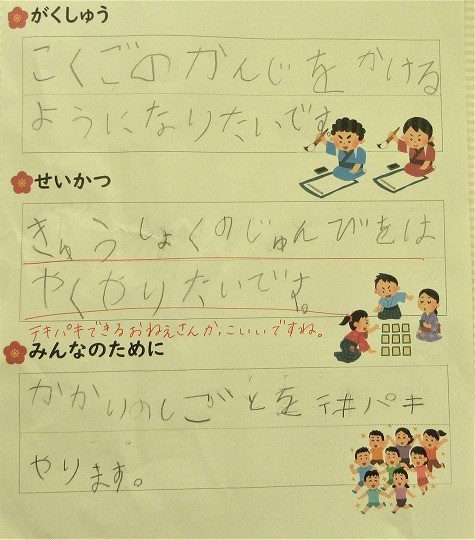 がくしゅう
こくごのかんじをかける
ようになりたいです
せいかつ
きゅうしょくのじゅんびをは
やくやりたいです。
テキパキできるおねえさんかっこいいですね。
みんなのために
かかりのしごとをテキパキ
やります。